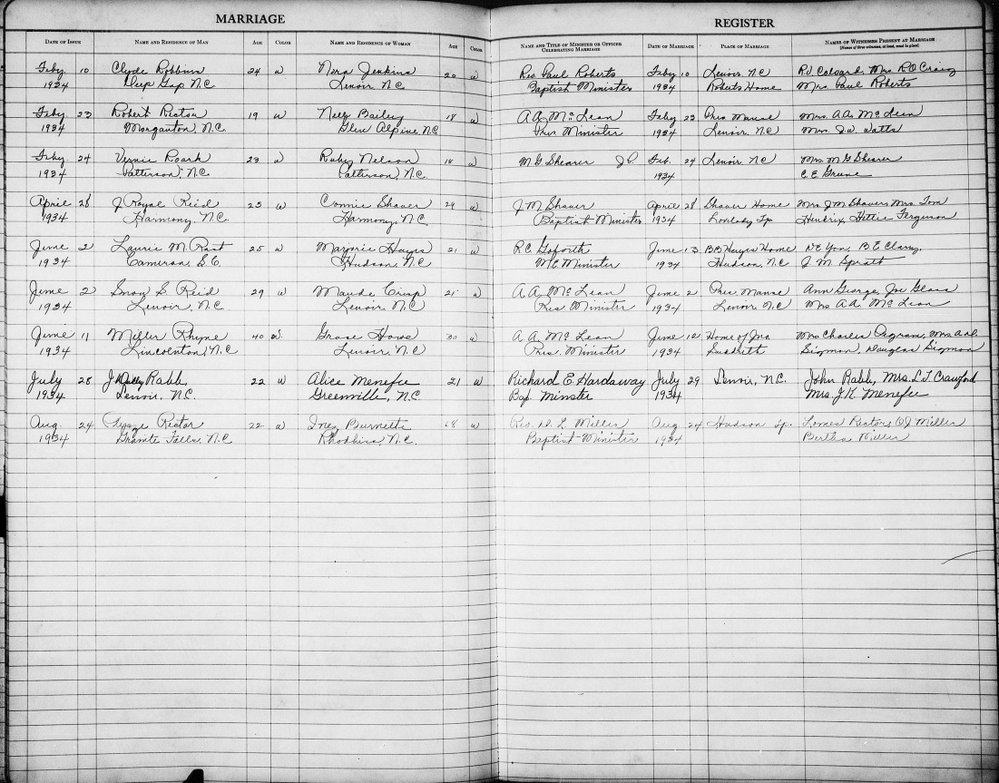 MARRIAGE REGISTER
DATE OF ISSUE NAME AND RESIDENCE OF MAN AGE COLOR NAME AND RESIDENCE OF WOMAN AGE COLOR NAME AND TITLE OF MINISTER OR OFFICER CELEBRATING MARRIAGE DATE OF MARRIAGE PLACE OF MARRIAGE NAMES OF WITNESSES PRESENT AT MARRIAGE
Feby 10 Clyde Robbins 24 W Nora Jenkins 20 W Rev. Paul Roberts Feby 10 Lenoir, N.C. Mrs. R.O. Craig
1934 Deep Gap N.C. Lenoir, N.C. Baptist Minister 1934 Roberts Home Mrs. Paul Roberts
Feby 23 Robert Rector 19 W Nell Bailey 18 W A.A. McLean Feby 23 Pres Manse Mrs. A.A. McLean
1934 Morganton, N.C. Glen Alpine, N.C. Pres Minister 1934 Lenoir, N.C. Mrs. J.W. Watts
Feby 24 Vernie Roark 23 W Ruby Nelson 18 W M.G. Shearer J.P. Feb. 24 Lenoir N.C. Mrs. M.G. Shearer
1934 Patterson, N.C. Patterson, N.C. 1934 C.E. Greene
April 28 J Royal Reid 23 W Connie Shaver 29 W J.M. Shaver April 28 Shaver Home Mrs. J.M. Shaver Mrs. Tom
1934 Harmony, N.C. Harmony, N.C. Baptist Minister 1934 Lovelady Tp Hendrix, Hettie Ferguson
June 2 Laurie M. Rast 25 W Marjorie Hayes 21 W R.C. Goforth June 13 B.B. Hayes Home B.E. Clary,
1934 Cameron, S.C. Hudson, N.C. M.E. Minister 1934 Hudson, N.C. J.M. Spratt
June 2 Snow S. Reid 29 W Maude Crisp 21 W A.A. McLean June 2 Pres. Manse Ann George, Joe
1934 Lenoir, N.C. Lenoir, N.C. Pres Minister 1934 Lenoir N.C. Mrs A.A. McLean
June 11 Miller Rhyne 40 W Grace Howe 30 W A.A. McLean June 12 Home of Ira Mrs Charles Pegram, Mrs
1934 Lincolnton, N.C. Lenoir, N.C. Pres. Minister 1934 Sudderth Sigmon, Douglas Sigmon
July 28 Rabb, 22 W Alice Menefee 21 W Richard E. Hardaway July 29 Lenoir, N.C. John Rabb, Mrs. L.T. Crawford
1934 Lenoir, N.C. Greenville, N.C. Bap. Minster 1934 Mrs. J.K. Menefee
Aug 24 Rector 22 W Inez Burnette 18 W Rev. D.L. Miller Aug 24 Hudson Tp. Rector, O.J. Miller
1934 Granite Falls, N.C. Rhodhiss, N.C. Baptist Minister 1934 Bertha Miller